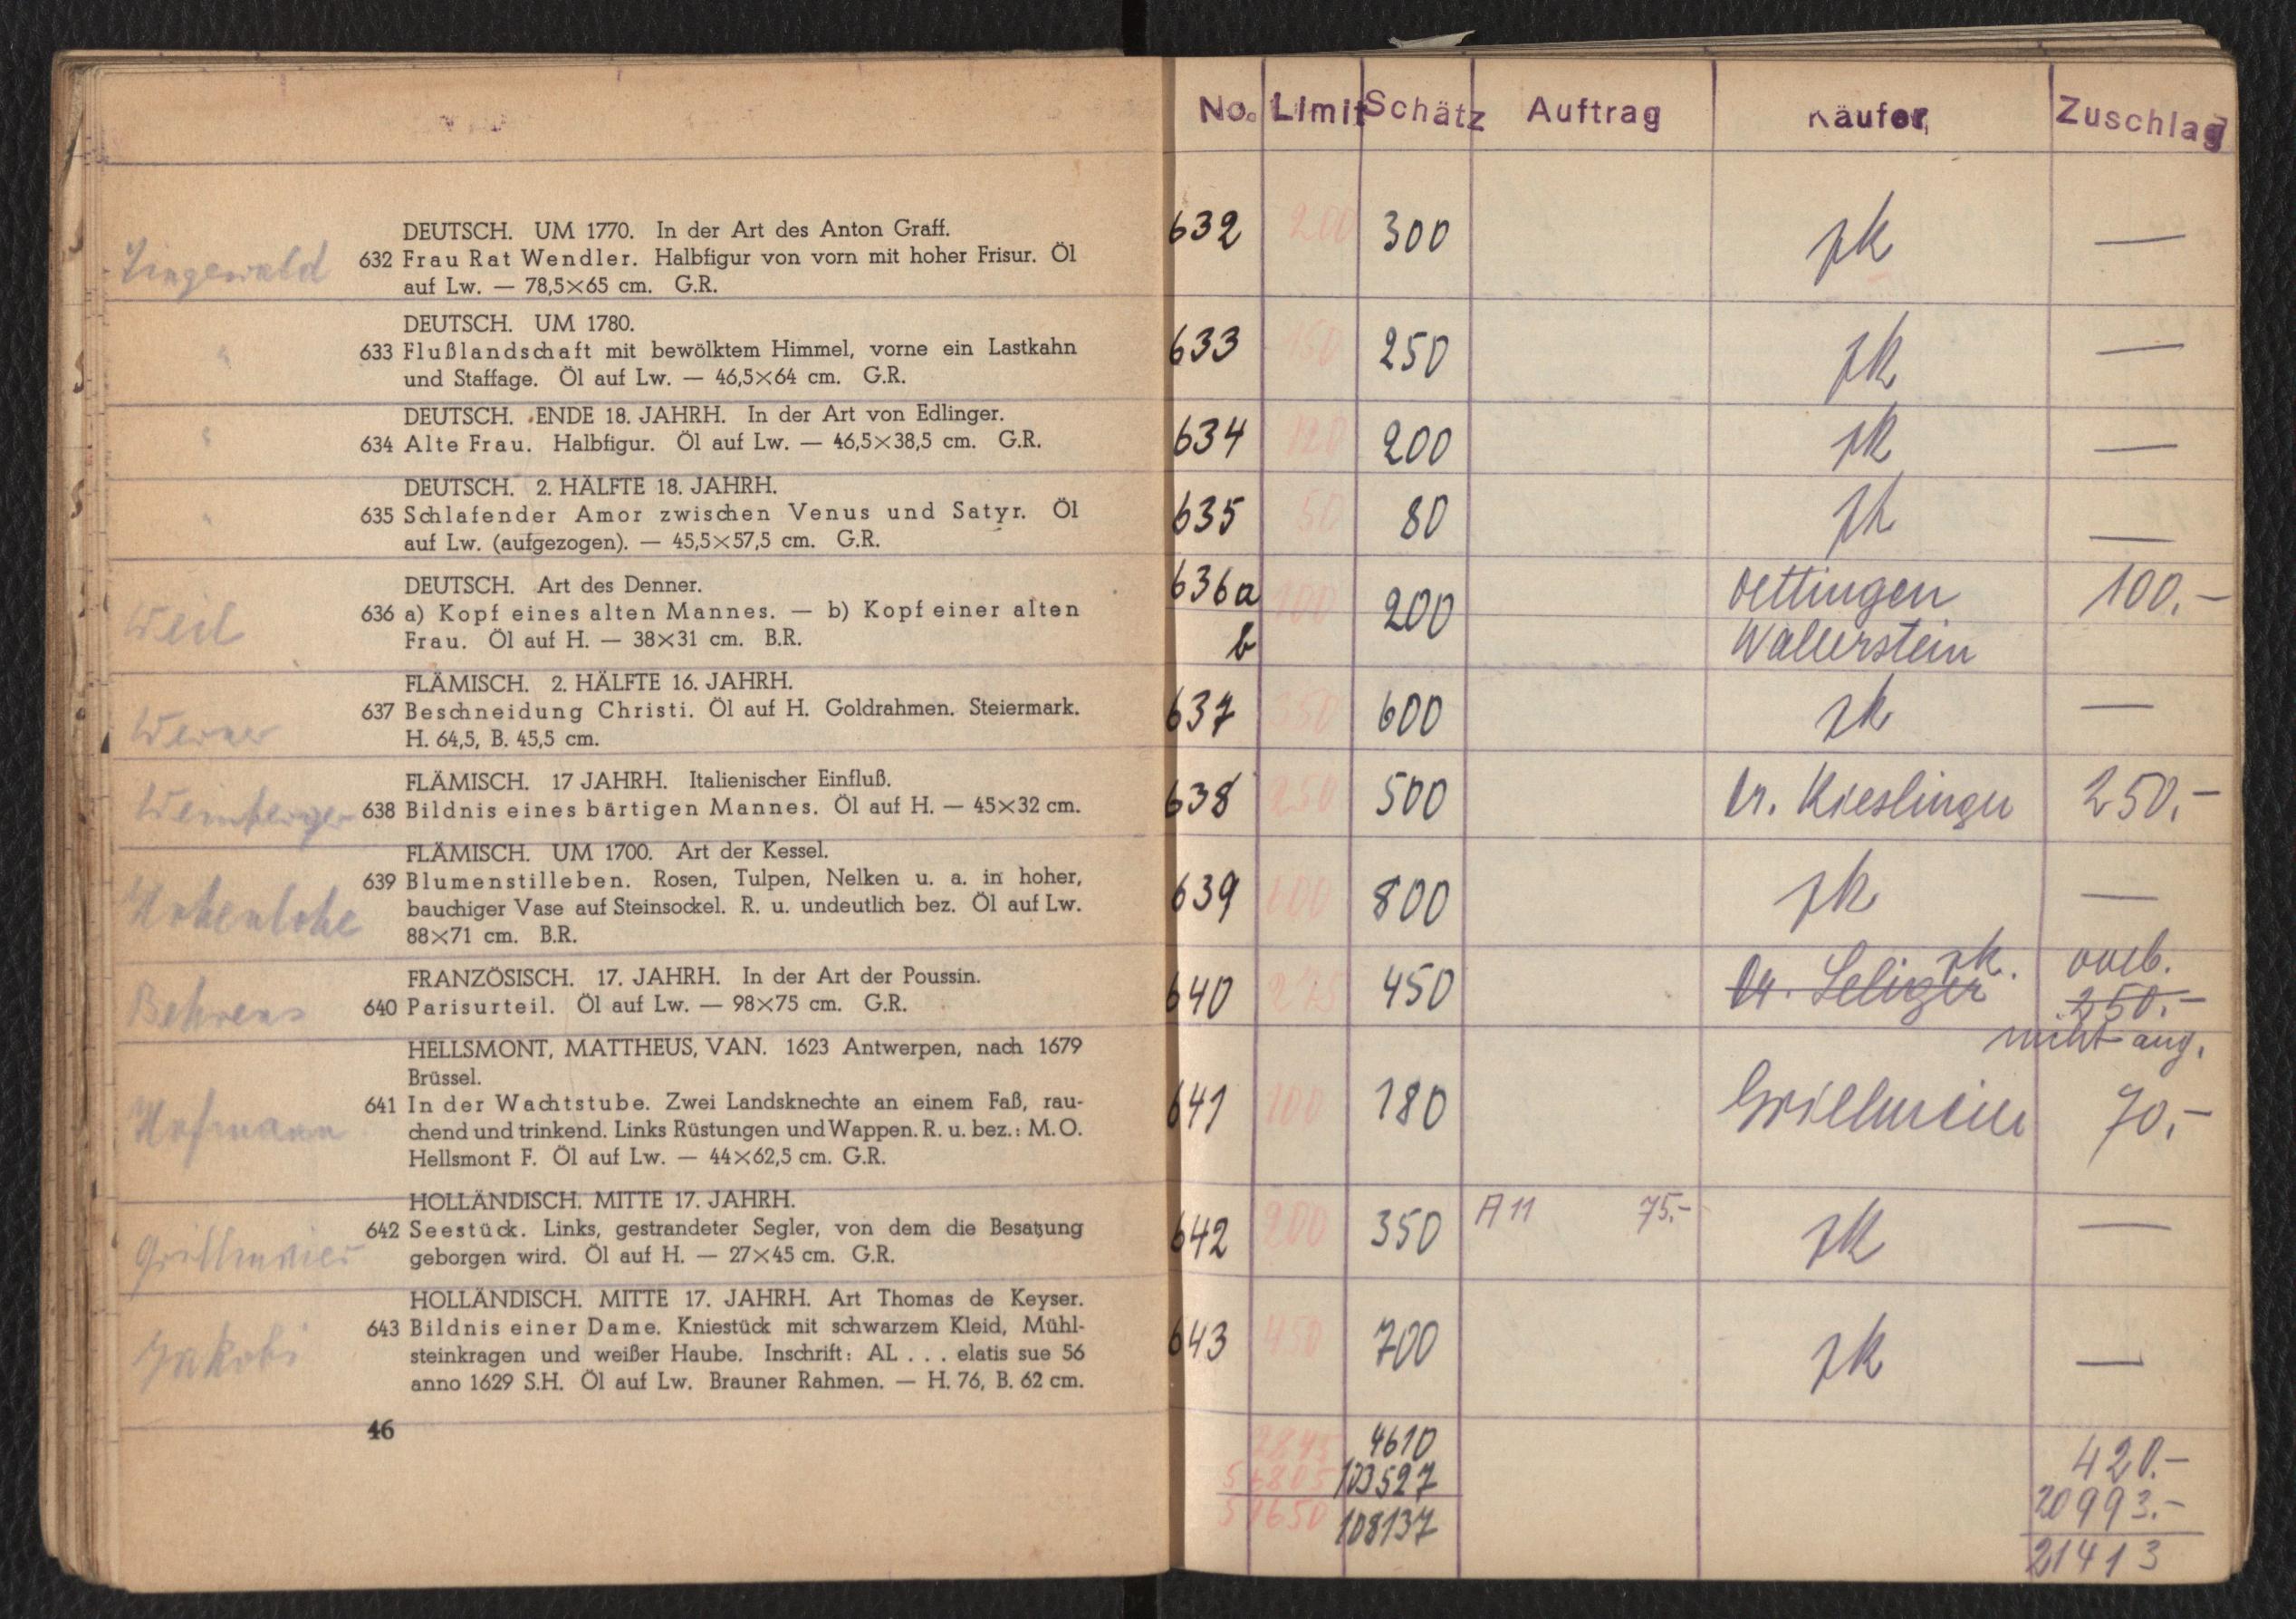 DEUTSCH. UM 1770. In der Art des Anton Graff.
632 Frau Rat Wendler. Halbfigur von vorn mit hoher Frisur. Öl
auf Lw. — 78,5×65 cm. G.R.
DEUTSCH. UM 1780.
633 Flußlandschaft mit bewölktem Himmel, vorne ein Lastkahn
und Staffage. Öl auf Lw. — 46,5×64 cm. G.R.
DEUTSCH. ENDE 18. JAHRH. In der Art von Edlinger.
634 Alte Frau. Halbfigur. Öl auf Lw. — 46,5×38,5 cm. G.R.
DEUTSCH. 2. HÄLFTE 18. JAHRH.
635 Schlafender Amor zwischen Venus und Satyr. Öl
auf Lw. (aufgezogen). — 45,5×57,5 cm. G.R.
DEUTSCH. Art des Denner.
Weil
636 a) Kopf eines alten Mannes. — b) Kopf einer alten
Frau. Öl auf H. — 38×31 cm. B.R.
FLÄMISCH. 2. HÄLFTE 16. JAHRH.
Werner
637 Beschneidung Christi. Öl auf H. Goldrahmen. Steiermark.
H. 64,5, B. 45,5 cm.
FLÄMISCH. 17 JAHRH. Italienischer Einfluß.
Weinberger
638 Bildnis eines bärtigen Mannes. Öl auf H. — 45×32 cm.
FLÄMISCH. UM 1700. Art der Kessel.
639 Blumenstilleben. Rosen, Tulpen, Nelken u. a. in hoher,
Hohenlohe
bauchiger Vase auf Steinsockel. R. u. undeutlich bez. Öl auf Lw.
88×71 cm. B.R.
FRANZÖSISCH. 17. JAHRH. In der Art der Poussin.
Behrens
640 Parisurteil. Öl auf Lw. — 98×75 cm. G.R.
HELLSMONT, MATTHEUS, VAN. 1623 Antwerpen, nach 1679
Brüssel.
641 In der Wachtstube. Zwei Landsknechte an einem Faß, rau-
Hofmann
chend und trinkend. Links Rüstungen und Wappen. R. u. bez.: M. O.
Hellsmont F. Öl auf Lw. — 44×62,5 cm. G.R.
HOLLÄNDISCH. MITTE 17. JAHRH.
642 Seestück. Links, gestrandeter Segler, von dem die Besatzung
Grillmeier
geborgen wird. Öl auf H. — 27×45 cm. G.R.
HOLLÄNDISCH. MITTE 17. JAHRH. Art Thomas de Keyser.
643 Bildnis einer Dame. Kniestück mit schwarzem Kleid, Mühl-
Jakobi
steinkragen und weißer Haube. Inschrift: AL . . . elatis sue 56
anno 1629 S.H. Öl auf Lw. Brauner Rahmen. — H. 76, B. 62 cm.
46
No. Limit Schätz Auftrag Käufer Zuschlag
632 200 300 zk —
633 150 250 zk —
634 120 200 zk —
635 50 80 zk —
636a 100 200 Oettingen 100.-
b Wallerstein
637 350 600 zk —
638 250 500 Dr. Kieslinger 250.-
639 600 800 zk —
zk. vorb.
640 275 450 Dr. Seliger 250.-
nicht ang.
641 100 180 Grillmeier 70.-
642 200 350 A 11 75.- zk —
643 450 700 zk —
2845 4610 420.-
103527 20993.-
51650 108137 21413